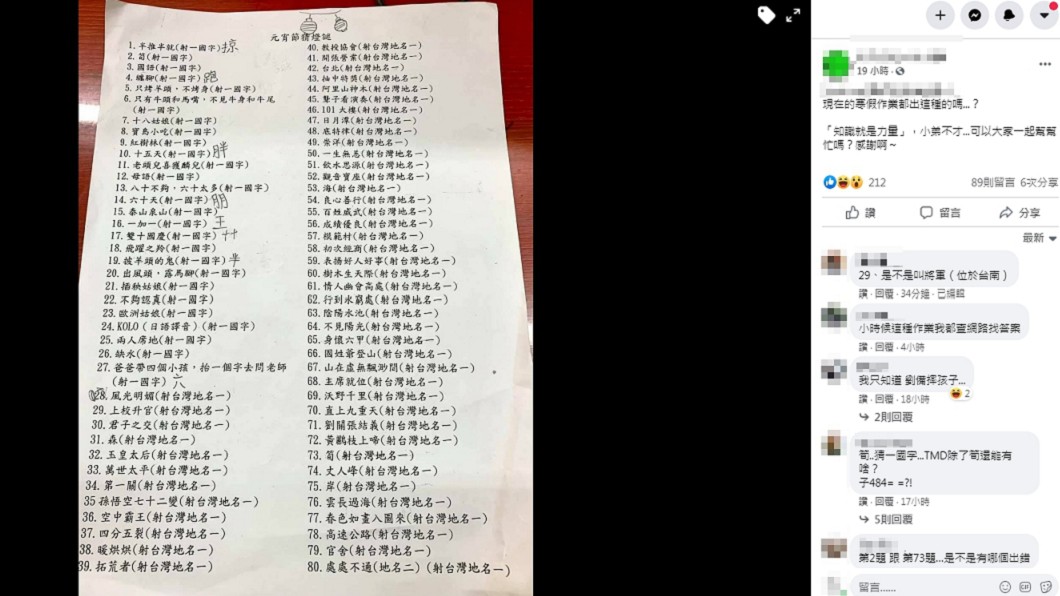 元宵節猜燈謎
1. 半推半就(射一國字)掠
2. 筍(射一國字)
3. 國語(射一國字)
4. 蠔腳(射一國字)跑
5. 只烤羊頭，不烤身(射一國字)
6. 只有牛頭和馬嘴，不見牛身和牛尾
(射一國字)
7. 十八姑娘(射一國字)
8. 寶島小吃(射一國字)
9. 紅樹林(射一國字)
10. 十五天(射一國字)胖
11. 老頭兒喜獲麟兒(射一國字)
12. 母語(射一國字)
13. 八十不夠，六十太多(射一國字)
14. 六十天(射一國字)朋
15. 泰山泉山(射一國字)
16. 一加一(射一國字)王
17. 雙十國慶(射一國字)艹
18. 飛躍之羚(射一國字)
19. 披羊頭的鬼(射一國字)羋
20. 出風頭，露馬腳(射一國字)
21. 插秧姑娘(射一國字)
22. 不夠認真(射一國字)
23. 歐洲姑娘(射一國字)
24. KOLO（日語譯音）(射一國字)
25. 兩人房地(射一國字)
26. 缺水(射一國字)
27. 爸爸帶四個小孩，抬一個字去問老師
(射一國字) 六
28. 風光明媚(射台灣地名一)
29. 上校升官(射台灣地名一)
30. 君子之交(射台灣地名一)
31. 森(射台灣地名一)
32. 玉皇太后(射台灣地名一)
33. 萬世太平(射台灣地名一)
34. 第一關(射台灣地名一)
35 孫悟空七十二變(射台灣地名一)
36. 空中霸王(射台灣地名一)
37. 四分五裂(射台灣地名一)
38. 暖烘烘(射台灣地名一)
39. 拓荒者(射台灣地名一)
40. 教授協會(射台灣地名一)
41. 開張營業(射台灣地名一)
42. 台北(射台灣地名一)
43. 抽中特獎(射台灣地名一)
44. 阿里山神木(射台灣地名一)
45. 聾子看演奏(射台灣地名一)
46. 101 大樓(射台灣地名一)
47. 日月潭(射台灣地名一)
48. 底特律(射台灣地名一)
49. 崇洋(射台灣地名一)
50. 一生無惡(射台灣地名一)
51. 飲水思源(射台灣地名一)
52. 觀音寶座(射台灣地名一)
53. 海(射台灣地名一)
54. 良心善行(射台灣地名一)
55. 百姓威武(射台灣地名一)
56. 成績優良(射台灣地名一)
57. 模範村(射台灣地名一)
58. 初次經商(射台灣地名一)
59. 表揚好人好事(射台灣地名一)
60. 樹木生天際(射台灣地名一)
61. 情人幽會高處(射台灣地名一)
62. 行到水窮處(射台灣地名一)
63. 陰陽水池(射台灣地名一)
64. 不見陽光(射台灣地名一)
65. 身懷六甲(射台灣地名一)
66. 國姓爺登山(射台灣地名一)
67. 山在虛無飄渺間(射台灣地名一)
68. 主席就位(射台灣地名一)
69. 沃野千里(射台灣地名一)
70. 直上九重天(射台灣地名一)
71. 劉關張結義(射台灣地名一)
72. 黃鸝枝上啼(射台灣地名一)
73. 筍(射台灣地名一)
74. 丈人峰(射台灣地名一)
75. 岸(射台灣地名一)
76. 雲長過海(射台灣地名一)
77. 春色如畫入圖來(射台灣地名一)
78. 高速公路(射台灣地名一)
79. 官舍(射台灣地名一)
80. 處處不通(地名二)（射台灣地名一)
19 小時
現在的寒假作業都出這種的嗎...？
「知識就是力量」，小弟不才...可以大家一起幫幫
忙嗎？感謝啊～
212
89則留言 6次分享
讚 留言 分享
最新
29、是不是叫將軍（位於台南）
讚 · 回覆 · 34分鐘 · 已編輯
小時候這種作業我都查網路找答案
讚 · 回覆 · 4小時
我只知道 劉備摔孩子...
2
讚 · 回覆 · 18小時
2則回覆
筍..猜一國字...TMD除了筍還能有
啥？
子484= =?!
讚 · 回覆 · 17小時
5則回覆
第2題 跟 第73題...是不是有哪個出錯
留言......
GIF